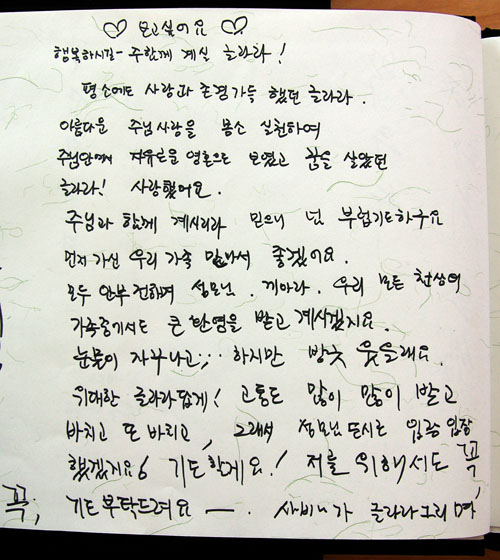 ♡ 보고싶어요 ♡
행복하시길- 주함께 계실 글라라!
평소에도 사랑과 존경가득 했던 글라라.
아름다운 주님사랑을 몸소 실천하여
주님안에서 자유로운 영혼으로 보였고 꿈을 살았던
글라라! 사랑했어요.
주님과 함께 계시리라 믿으니 넘 부럽기도하구요
먼저 가신 우리 가족 만나서 좋겠어요.
모두 안부 전하며 성모님. 끼아라. 우리 모든 천상의
가족중에서도 큰 환영을 받고 계시겠지요.
눈물이 자꾸나고;,, 하지만 방긋 웃을래요.
위대한 글라라답게! 고통도 많이 많이 받고
바치고 또 바치고, 그래서 성모님 든시는 입장
했겠거요! 기도할게요! 저를 위해서도 꼭
꼭, 기도부탁드려요 —. 사비나가 글라라그리며,